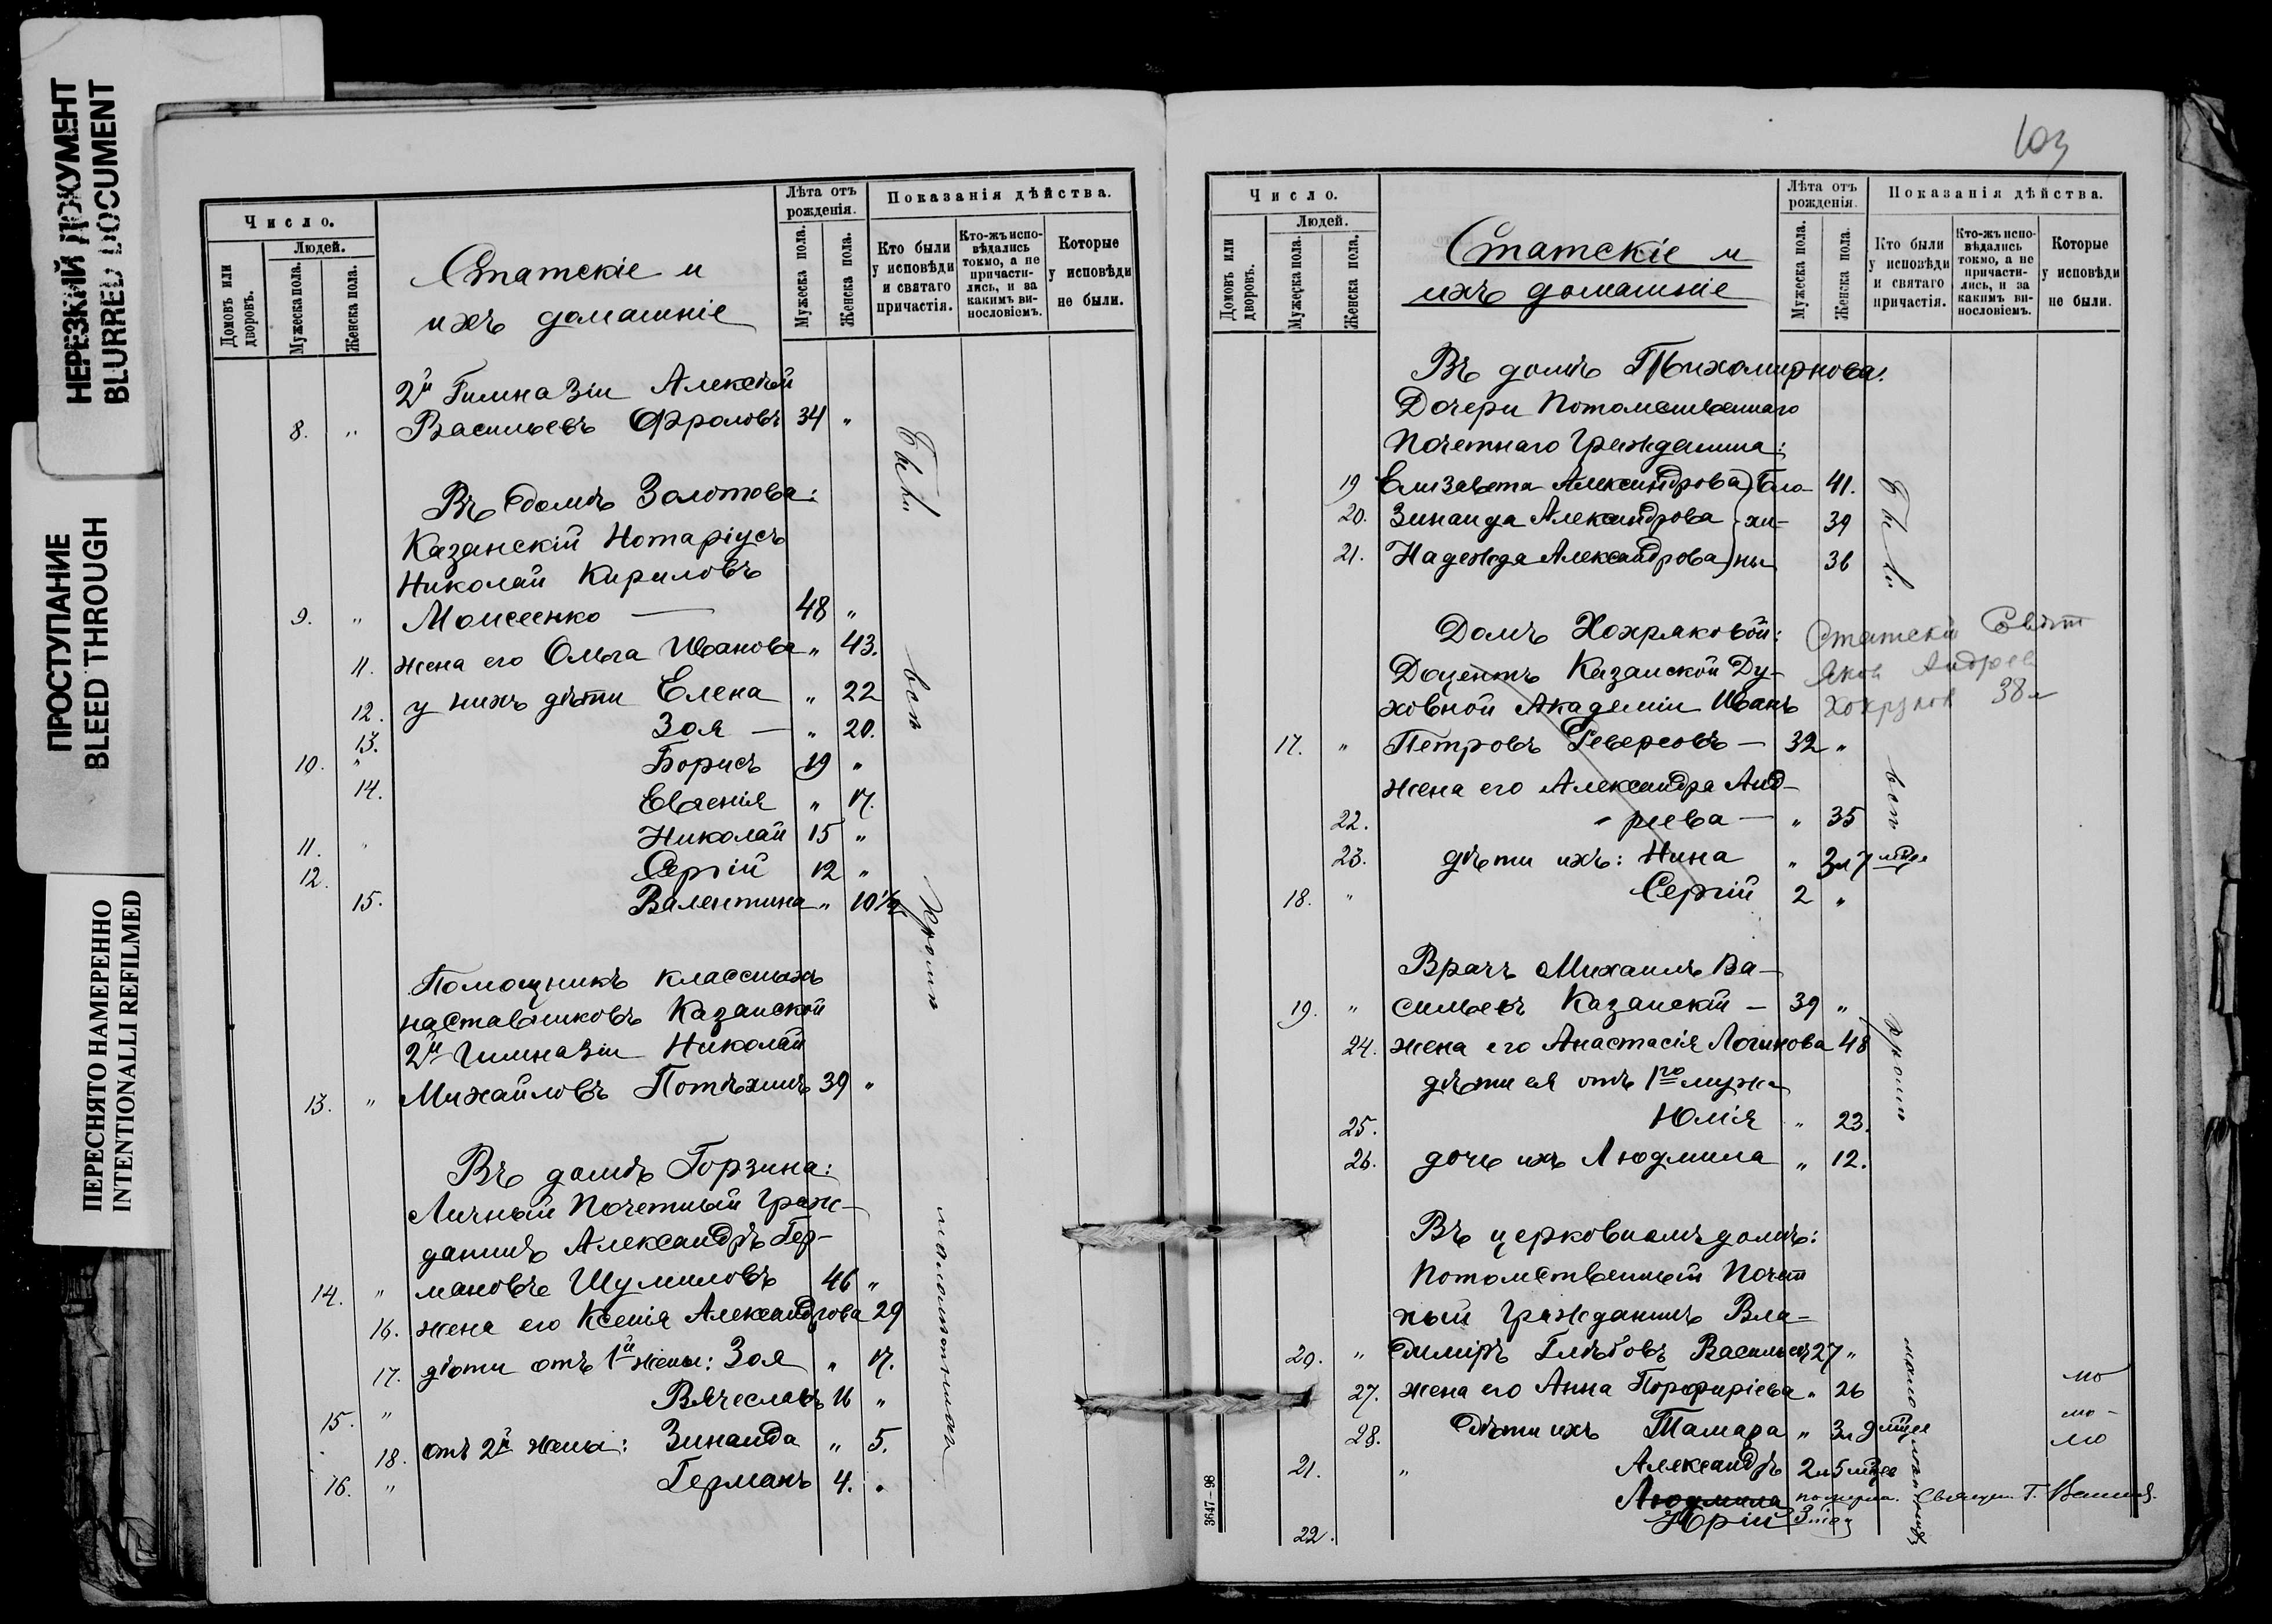 НЕРЕЗКИЙ ДОКУМЕНТ
BLURRED DOCUMENT
ПРОСТУПАНИЕ
BLEED THROUGH
ПЕРЕСНЯТО НАМЕРЕННО
INTENTIONALLI REFILMED
Число.
Людей.
Домовъ или дворовъ.
Мужеска пола.
Женска пола.
Статскіе и
ихъ домашніе
Лѣта отъ рожденія.
Мужеска пола.
Женска пола.
Показанія дѣйства.
Кто были у исповѣди и святаго причастія.
Кто-жъ исповѣдались токмо, а не причастились, и за какимъ винословіемъ.
Которые у исповѣди не были.
2й Гимназіи Алексѣй
8. " Васильевъ Фроловъ 34 "
Въ домѣ Золотова:
Казанскій Нотаріусъ
Николай Кириловъ
9. " Моисеенко — 48 "
11. жена его Ольга Иванова " 43.
12. у нихъ дѣти Елена " 22
13. Зоя — " 20.
10. " Борисъ 19 "
14. Евгенія " 17.
11. " Николай 15 "
12. Сергій 12 "
15. Валентина " 10½
Помощникъ классныхъ
наставниковъ Казанской
2й Гимназіи Николай
13. " Михайловъ Потѣхинъ 39 "
Въ домѣ Горзина:
Личный Почетный Граж-
данинъ Александръ Гер-
14. " мановъ Шумиловъ 46 "
16. жена его Ксенія Александрова 29
17. дѣти отъ 1й жены: Зоя " 17.
15. " Вячеславъ 16 "
18. отъ 2й жены: Зинаида " 5.
16. " Германъ 4. "
Были
всѣ
кромѣ
малолѣтнихъ
103
Число.
Людей.
Домовъ или дворовъ.
Мужеска пола.
Женска пола.
Статскіе и
ихъ домашніе
Лѣта отъ рожденія.
Мужеска пола.
Женска пола.
Показанія дѣйства.
Кто были у исповѣди и святаго причастія.
Кто-жъ исповѣдались токмо, а не причастились, и за какимъ винословіемъ.
Которые у исповѣди не были.
Въ домѣ Тихомирнова:
Дочери Потомственнаго
Почетнаго Гражданина:
19 Елизавета Александрова) Бло- 41.
20. Зинаида Александрова } хи- 39
21. Надежда Александрова) ны 36
Домъ Хохряковой: Статскій Совѣт
Доцентъ Казанской Ду- Яков Андреев
ховной Академіи Иванъ Хохряков 38 л
17. " Петровъ Реверсовъ — 32 "
жена его Александра Анд-
22. -реева — " 35
23. дѣти ихъ: Нина " 3 л 7 мѣс
18. " Сергій 2 "
Врачъ Михаилъ Ва-
19. " сильевъ Казанскій — 39 "
24. жена его Анастасія Логинова 48
дѣти ея отъ 1го мужа
25. Юлія " 23.
26. дочь ихъ Людмила " 12.
Въ церковномъ домѣ:
Потомственный Почет
ный Гражданинъ Вла-
20. " диміръ Глѣбовъ Васильевъ 27 "
27. жена его Анна Порфиріева " 26 мо
28. Дѣти ихъ Тамара " 3 л 9 мѣс мо-
21. " Александръ 2 л 5 мѣс мо
Людмила померла. Священ. Г.
22. Юрій 3 мѣс
Были
всѣ
кромѣ
малолѣтнихъ
3647-98